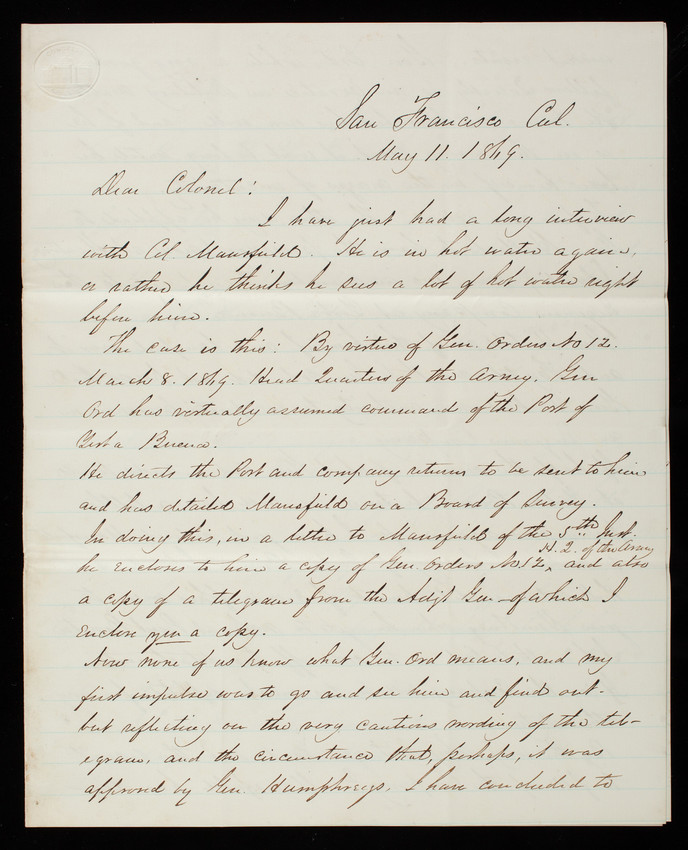 San Francisco Cal.
May 11. 1869.
Dear Colonel!
I have just had a long interview
with Cl. Mansfield. He is in hot water again,
or rather he thinks he sees a lot of hot water right
before him.
The case is this: By virtue of Gen. Orders No 12.
March 8. 1869. Head Quarters of the Army, Gen
Ord has virtually assumed command of the Post of
Yerba Buena.
He directs the Post and company returns to be sent to him
and has detailed Mansfield on a Board of Survey.
In doing this, in a letter to Mansfield of the 5th Inst.
H. Q. of the Army
he encloses to him a copy of Gen. Orders No. 12, and also
a copy of a telegram from the Adjt Gen - of which I
enclose you a copy.
Now none of us know what Gen. Ord means, and my
first impulse was to go and see him and find out -
but reflecting on the very cautious wording of the tel-
egram, and the circumstance that, perhaps, it was
approved by Gen. Humphreys, I have concluded to